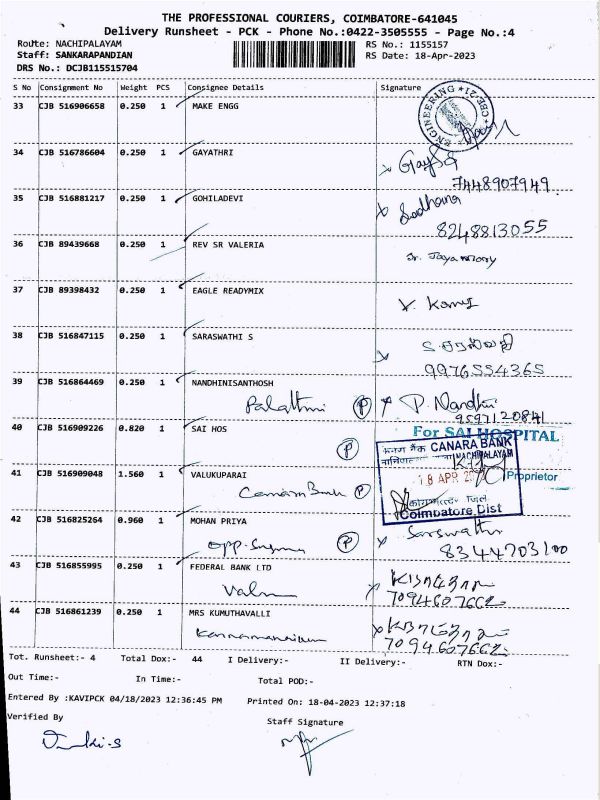 THE PROFESSIONAL COURIERS, COIMBATORE-641045
Delivery Runsheet - PCK - Phone No.:0422-3505555 - Page No.:4
Route: NACHIPALAYAM RS No.: 1155157
Staff: SANKARAPANDIAN RS Date: 18-Apr-2023
DRS No.: DCJB115515704
S No Consignment No Weight PCS Consignee Details Signature
33 CJB 516906658 0.250 1 MAKE ENGG
ENGINEERING * CBE-21 *
34 CJB 516786604 0.250 1 GAYATHRI
7448907949
35 CJB 516881217 0.250 1 GOHILADEVI Sadhana
8248813055
36 CJB 89439668 0.250 1 REV SR VALERIA
Sr. Jaya Mary
37 CJB 89398432 0.250 1 EAGLE READYMIX
38 CJB 516847115 0.250 1 SARASWATHI S
9976554365
39 CJB 516864469 0.250 1 NANDHINISANTHOSH
P P. Nandhini
9597120841
40 CJB 516909226 0.820 1 SAI HOS For SAI HOSPITAL
P CANARA BANK
NACHIPALAYAM
41 CJB 516909048 1.560 1 VALUKUPARAI 18 APR Proprietor
Canara Bank P
Coimbatore Dist
42 CJB 516825264 0.960 1 MOHAN PRIYA
P 8344703100
43 CJB 516855995 0.250 1 FEDERAL BANK LTD
7094607662
44 CJB 516861239 0.250 1 MRS KUMUTHAVALLI
7094607662
Tot. Runsheet:- 4 Total Dox:- 44 I Delivery:- II Delivery:- RTN Dox:-
Out Time:- In Time:- Total POD:-
Entered By :KAVIPCK 04/18/2023 12:36:45 PM Printed On: 18-04-2023 12:37:18
Verified By Staff Signature